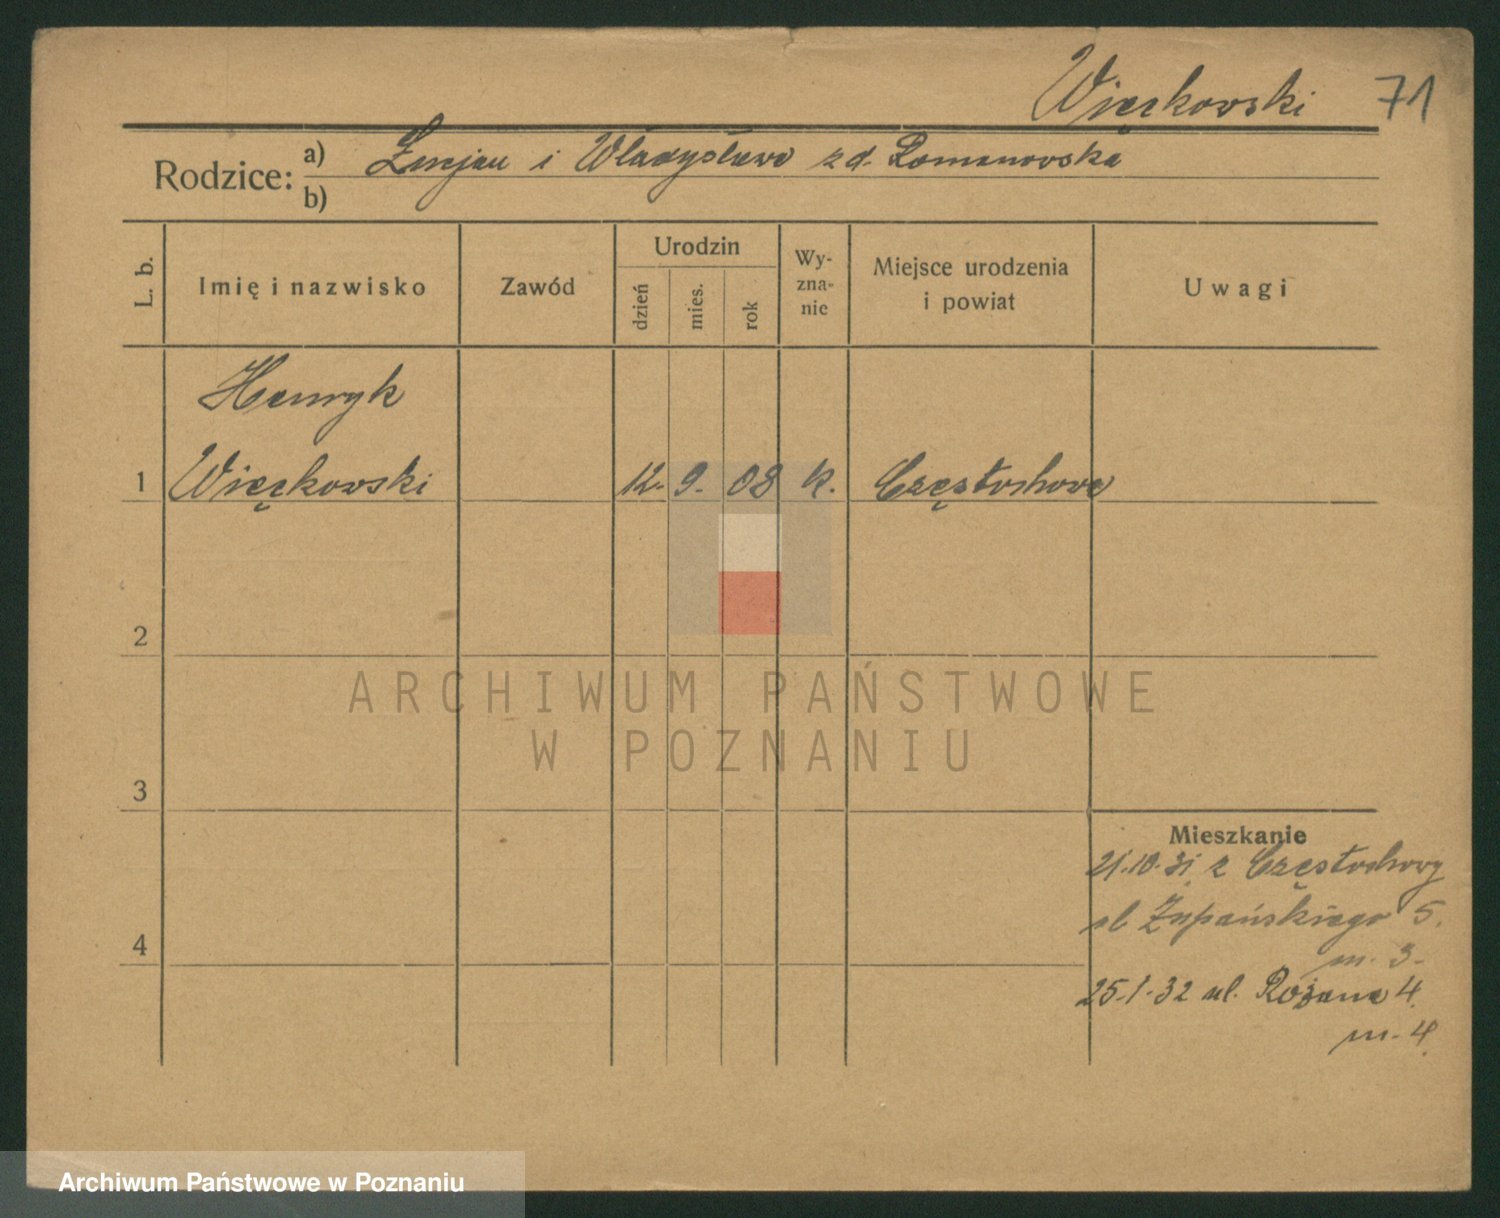 Więckowski 71
Rodzice: a) Łucjan i Władysława zd. Romanowska
b)
L. b. Imię i nazwisko Zawód Urodzin dzień mies. rok Wyznanie Miejsce urodzenia i powiat Uwagi
Henryk
1 Więckowski 12. 9. 08 k. Częstochowa
2
ARCHIWUM PAŃSTWOWE
W POZNANIU
3
Mieszkanie
21.10.31 z Częstochowy
ul Żupańskiego 5.
4
m. 3.
25.1.32 ul. Różana 4.
m. 4.
Archiwum Państwowe w Poznaniu